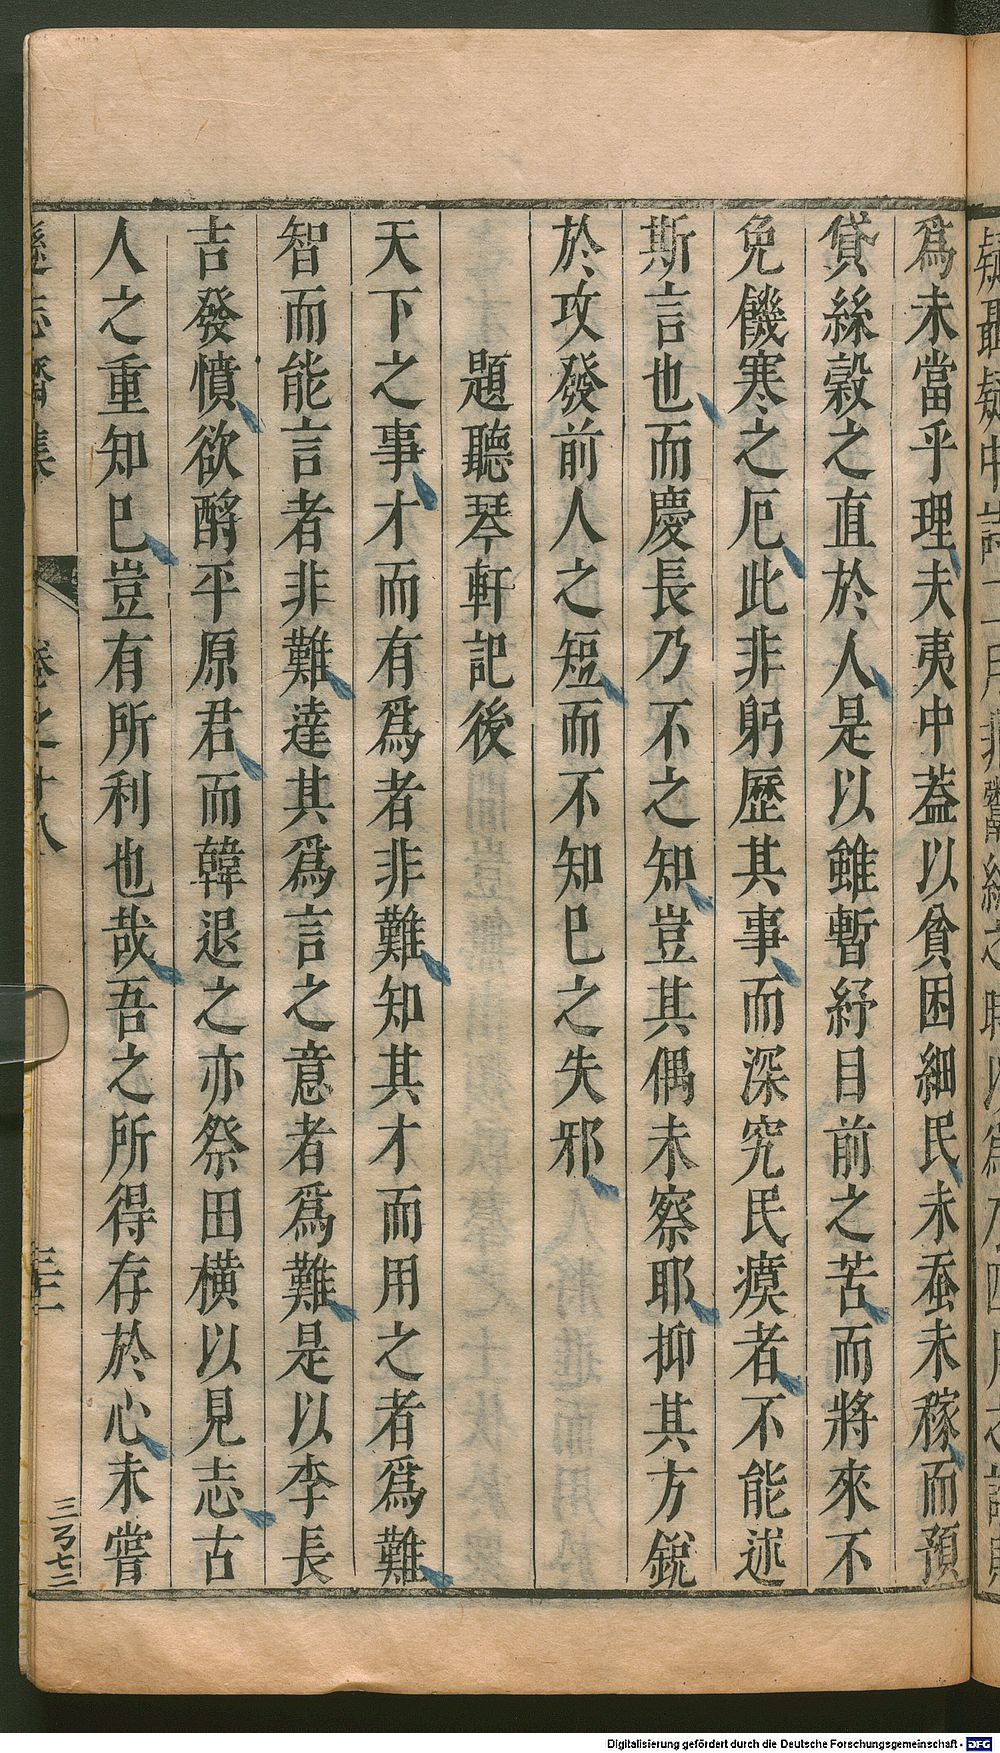 爲未當乎理夫夷中葢以貧困細民未蚕未稼而預
貸絲穀之直於人是以雖暫紓目前之苦而將來不
免饑寒之厄此非躬歷其事而深究民瘼者不能述
斯言也而慶長乃不之知豈其偶未察耶抑其方銳
於攻發前人之短而不知巳之失邪
題聽琴軒記後
天下之事才而有爲者非難知其才而用之者爲難
智而能言者非難達其爲言之意者爲難是以李長
吉發憤欲酹平原君而韓退之亦祭田橫以見志古
人之重知巳豈有所利也哉吾之所得存於心未嘗
遜志齋集
卷之十八
三十一
三弓七二
Digitalisierung gefördert durch die Deutsche Forschungsgemeinschaft - DFG